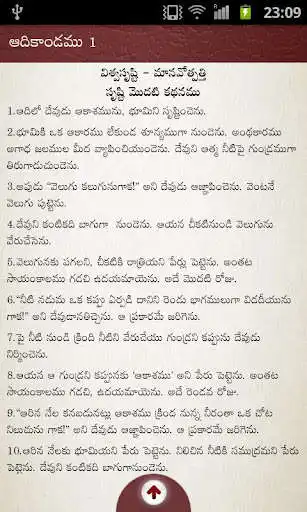 23:09
ఆదికాండము 1
విశ్వసృష్టి - మానవోత్పత్తి
సృష్టి మొదటి కథనము
1.ఆదిలో దేవుడు ఆకాశమును, భూమిని సృష్టించెను.
2.భూమికి ఒక ఆకారము లేకుండ శూన్యముగా నుండెను. అంధకారము
అగాధ జలముల మీద వ్యాపించియుండెను. దేవుని ఆత్మ నీటిపై గుండ్రముగా
తిరుగాడుచుండెను.
3.అపుడు "వెలుగు కలుగునుగాక!" అని దేవుడు ఆజ్ఞాపించెను. వెంటనే
వెలుగు పుట్టెను.
4.దేవుని కంటికది బాగుగా నుండెను. ఆయన చీకటినుండి వెలుగును
వేరుచేసెను.
5.వెలుగునకు పగలని, చీకటికి రాత్రియని పేర్లు పెట్టెను. అంతట
సాయంకాలము గడచి ఉదయమాయెను. అదే మొదటి రోజు.
6."నీటి నడుమ ఒక కప్పు ఏర్పడి దానిని రెండు భాగములుగా విడదీయును
గాక!" అని దేవుడానతిచ్చెను. ఆ ప్రకారమే జరిగెను.
7.పై నీటి నుండి క్రింది నీటిని వేరుచేయు గుండ్రని కప్పును దేవుడు
నిర్మించెను.
8.ఆయన ఆ గుండ్రని కప్పునకు 'ఆకాశము' అని పేరు పెట్టెను. అంతట
సాయంకాలము గడచి, ఉదయమాయెను. అదే రెండవ రోజు.
9."ఆరిన నేల కనబడునట్లు ఆకాశము క్రింద నున్న నీరంతా ఒక చోట
నిలుచును గాక!" అని దేవుడు ఆజ్ఞాపించెను. ఆ ప్రకారమే జరిగెను.
10.ఆరిన నేలకు భూమియని పేరు పెట్టెను. నిలిచిన నీటికి సముద్రమని పేరు
పెట్టెను. దేవుని కంటికది బాగుగానుండెను.